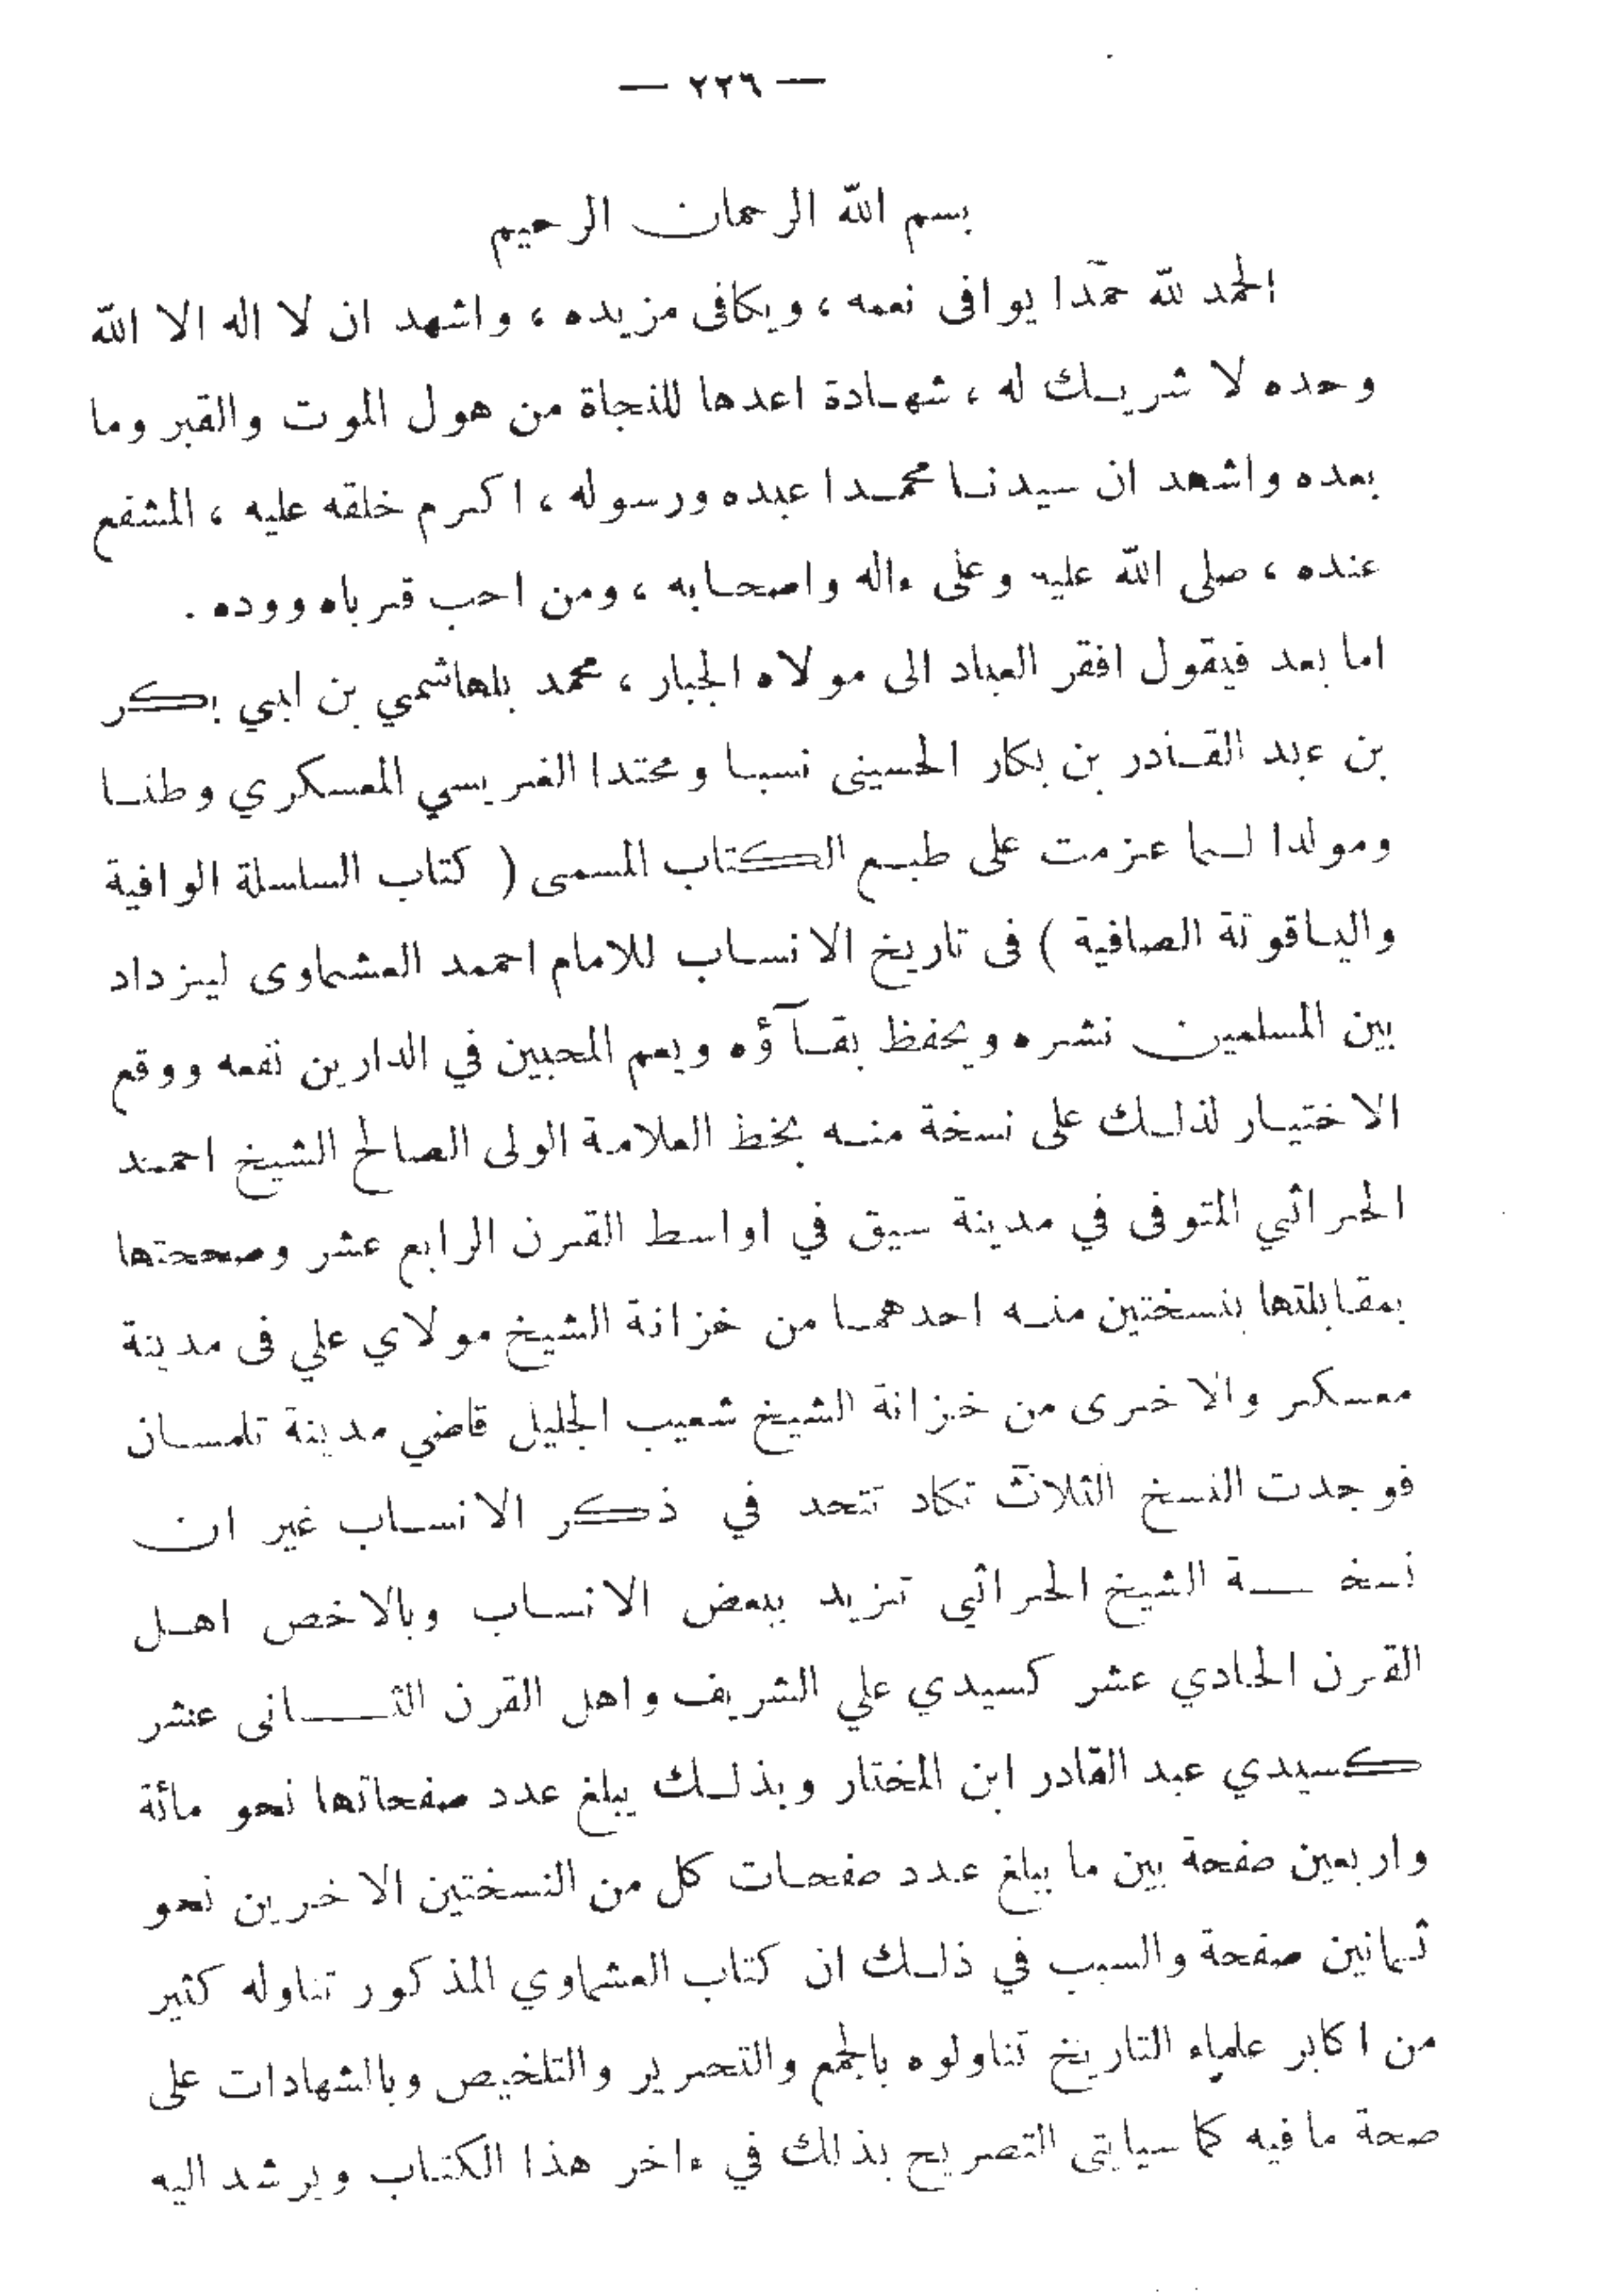 — ٢٢٦ —
بسم الله الرحمان الرحيم
الحمد لله حمدا يوافى نعمه ، ويكافى مزيده ، واشهد ان لا اله الا الله
وحده لا شريك له ، شهادة اعدها للنجاة من هول الموت والقبر وما
بعده واشهد ان سيدنا محمدا عبده ورسوله ، اكرم خلقه عليه ، المشفع
عنده ، صلى الله عليه وعلى ءاله واصحابه ، ومن احب قرباه ووده .
اما بعد فيقول افقر العباد الى مولاه الجبار ، محمد بلهاشمي بن ابي بكر
بن عبد القادر بن بكار الحسينى نسبا ومحتدا الغريسي المعسكري وطنا
ومولدا لما عزمت على طبع الكتاب المسمى ( كتاب السلسلة الوافية
والياقوتة الصافية ) فى تاريخ الانساب للامام احمد العشماوى ليزداد
بين المسلمين نشره ويحفظ بقآؤه ويعم المحبين في الدارين نفعه ووقع
الاختيار لذلك على نسخة منه بخط العلامة الولى الصالح الشيخ احمد
الحراثي المتوفى في مدينة سيق في اواسط القرن الرابع عشر وصححتها
بمقابلتها بنسختين منه احدهما من خزانة الشيخ مولاي علي فى مدينة
معسكر والاخرى من خزانة الشيخ شعيب الجليل قاضي مدينة تلمسان
فوجدت النسخ الثلاث تكاد تتحد في ذكر الانساب غير ان
نسخة الشيخ الحراثي تزيد ببعض الانساب وبالاخص اهل
القرن الحادي عشر كسيدي علي الشريف واهل القرن الثانى عشر
كسيدي عبد القادر ابن المختار وبذلك يبلغ عدد صفحاتها نحو مائة
واربعين صفحة بين ما يبلغ عدد صفحات كل من النسختين الاخرين نحو
ثمانين صفحة والسبب في ذلك ان كتاب العشماوي المذكور تناوله كثير
من اكابر علماء التاريخ تناولوه بالجمع والتحرير والتلخيص وبالشهادات على
صحة ما فيه كما سيايتى التصريح بذلك في ءاخر هذا الكتاب ويرشد اليه